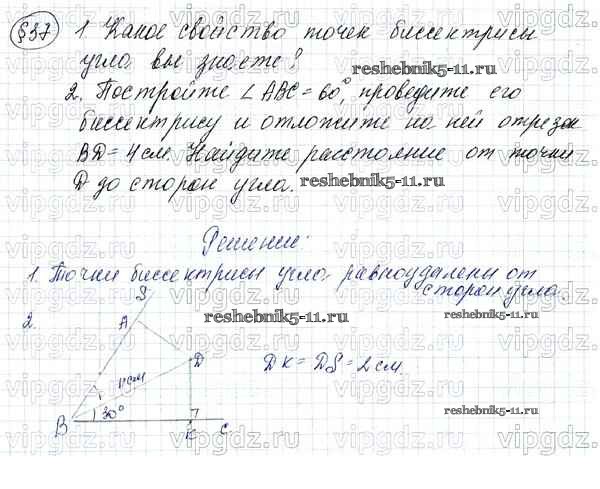 §37 1. Какое свойство точек биссектрисы
угла вы знаете?
reshebnik5-11.ru
2. Постройте ∠ABC = 60°, проведите его
биссектрису и отложите на ней отрезок
BD = 4 см. Найдите расстояние от точки
D до сторон угла.
reshebnik5-11.ru
Решение:
1. Точки биссектрисы угла равноудалены от
сторон угла.
2.
S
A
reshebnik5-11.ru
D
DK = DS = 2 см
4 см
30°
B
K
C
reshebnik5-11.ru
vipgdz.ru